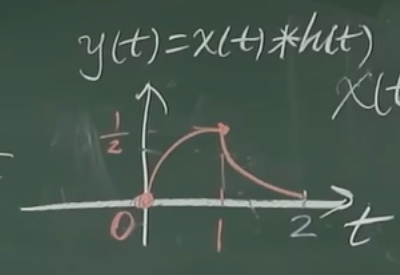 y(t)=x(t)*h(t)
X(t
1/2
0
1
2
t